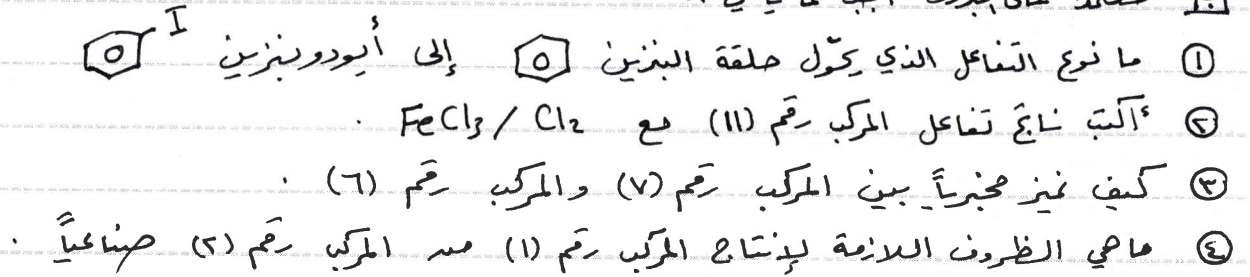 ① ما نوع التفاعل الذي يحوّل حلقة البنزين إلى أيودوبنزين I
② أكتب ناتج تفاعل المركب رقم (11) مع FeCl3 / Cl2 .
③ كيف نميز مخبرياً بين المركب رقم (٧) والمركب رقم (٦) .
④ ماهي الظروف اللازمة لإنتاج المركب رقم (١) من المركب رقم (٢) صناعياً .